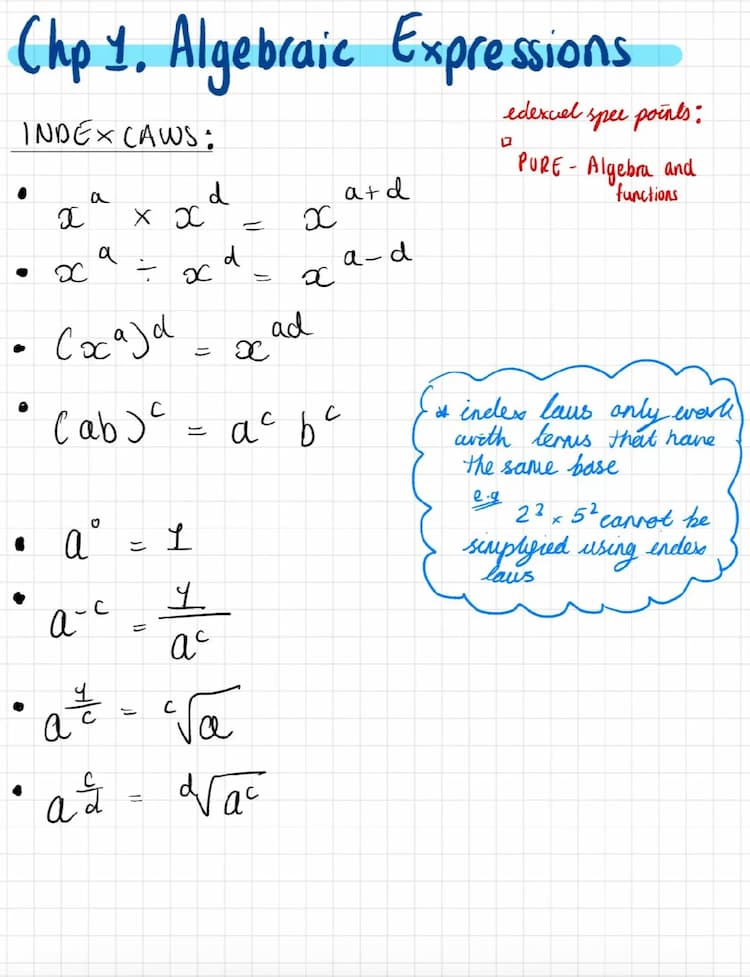 Chp 1. Algebraic Expressions
edexcel spec points:
INDEX LAWS:
PURE - Algebra and
functions
• xᵃ × xᵈ = xᵃ⁺ᵈ
• xᵃ ÷ xᵈ = xᵃ⁻ᵈ
• (xᵃ)ᵈ = xᵃᵈ
• (ab)ᶜ = aᶜ bᶜ
* index laws only work
with terms that have
the same base
e.g
2³ × 5² cannot be
simplified using index
laws
• a⁰ = 1
• a⁻ᶜ = 1/aᶜ
• a^(1/c) = ᶜ√a
• a^(c/d) = ᵈ√aᶜ